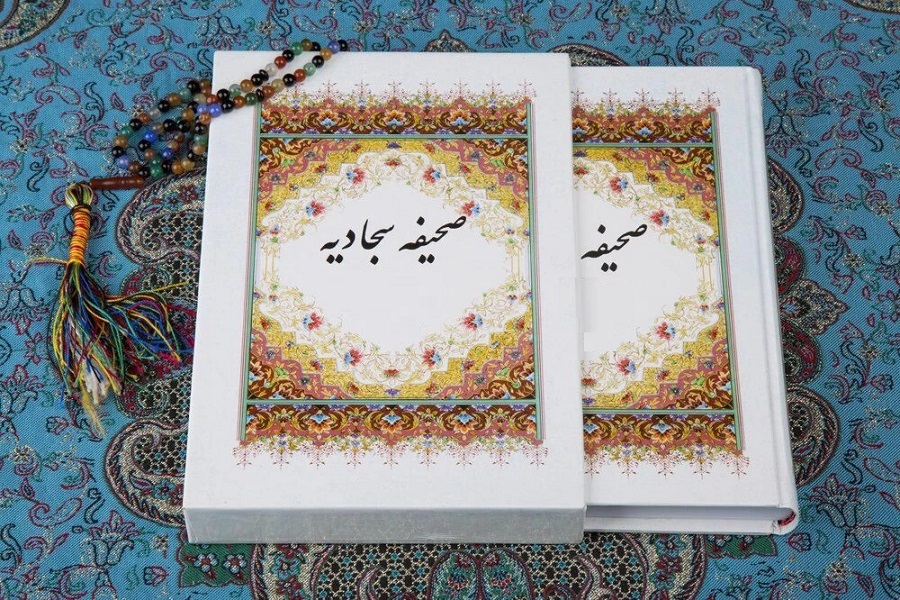 صحیفه سجادیه
صحیفه